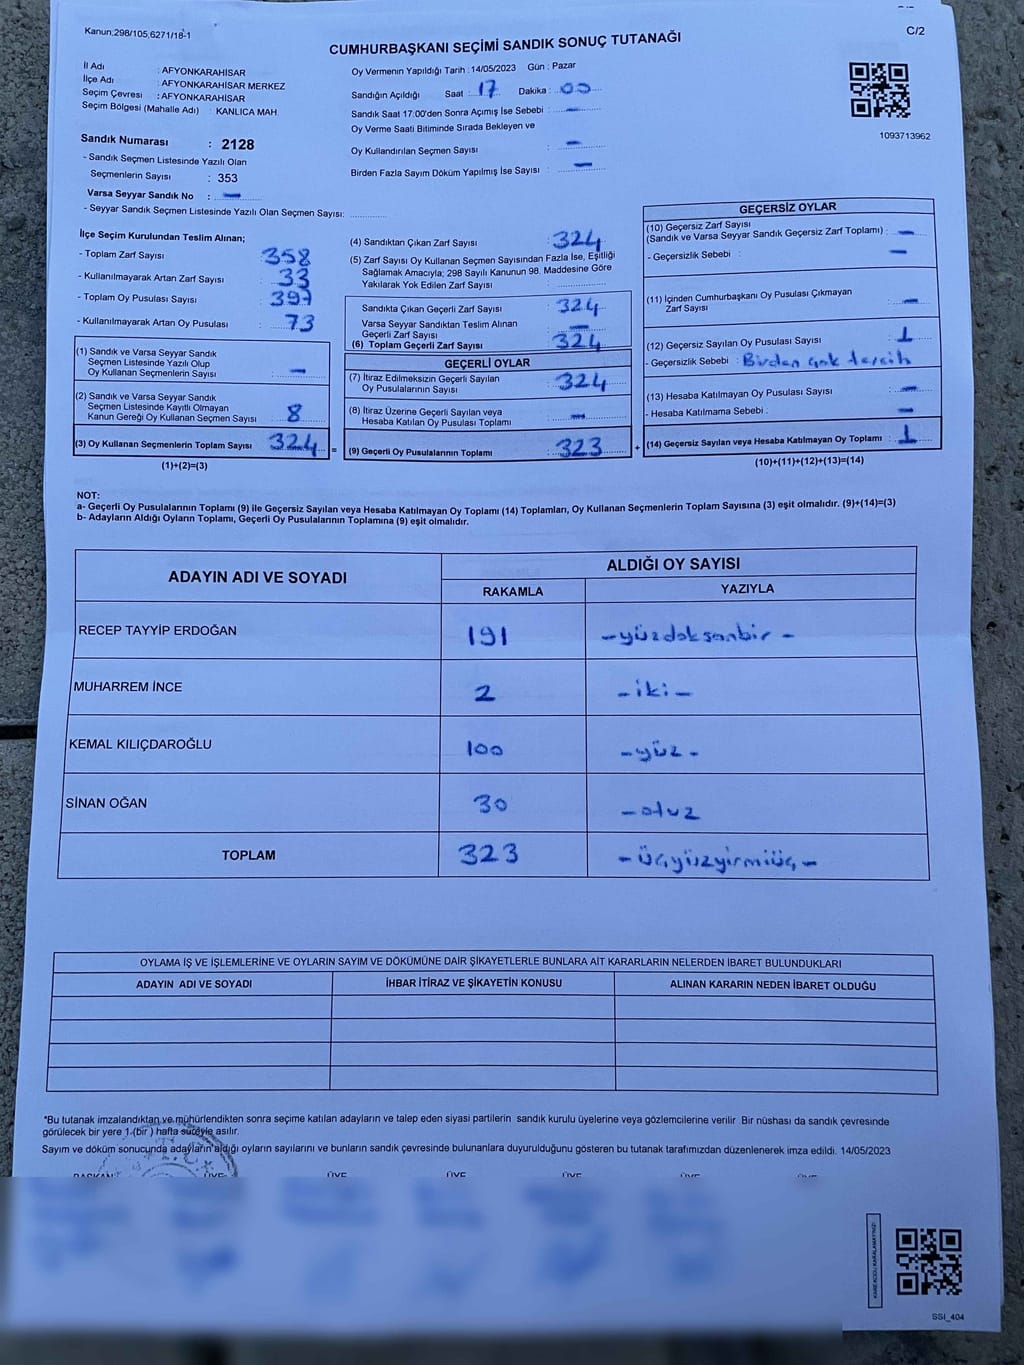 Kanun:298/105,6271/18-1
C/2
CUMHURBAŞKANI SEÇİMİ SANDIK SONUÇ TUTANAĞI
İl Adı : AFYONKARAHİSAR
İlçe Adı : AFYONKARAHİSAR MERKEZ
Seçim Çevresi : AFYONKARAHİSAR
Seçim Bölgesi (Mahalle Adı) : KANLICA MAH.
Sandık Numarası : 2128
- Sandık Seçmen Listesinde Yazılı Olan
Seçmenlerin Sayısı : 353
Varsa Seyyar Sandık No : —
- Seyyar Sandık Seçmen Listesinde Yazılı Olan Seçmen Sayısı:
Oy Vermenin Yapıldığı Tarih : 14/05/2023 Gün : Pazar
Sandığın Açıldığı Saat : 17 Dakika : 00
Sandık Saat 17:00'den Sonra Açımış İse Sebebi : —
Oy Verme Saati Bitiminde Sırada Bekleyen ve
Oy Kullandırılan Seçmen Sayısı : —
Birden Fazla Sayım Döküm Yapılmış İse Sayısı : —
1093713962
İlçe Seçim Kurulundan Teslim Alınan;
- Toplam Zarf Sayısı : 358
- Kullanılmayarak Artan Zarf Sayısı : 33
- Toplam Oy Pusulası Sayısı : 397
- Kullanılmayarak Artan Oy Pusulası : 73
(1) Sandık ve Varsa Seyyar Sandık
Seçmen Listesinde Yazılı Olup
Oy Kullanan Seçmenlerin Sayısı : —
(2) Sandık ve Varsa Seyyar Sandık
Seçmen Listesinde Kayıtlı Olmayan
Kanun Gereği Oy Kullanan Seçmen Sayısı : 8
(3) Oy Kullanan Seçmenlerin Toplam Sayısı : 324 =
(1)+(2)=(3)
(4) Sandıktan Çıkan Zarf Sayısı : 324
(5) Zarf Sayısı Oy Kullanan Seçmen Sayısından Fazla İse, Eşitliği
Sağlamak Amacıyla; 298 Sayılı Kanunun 98. Maddesine Göre
Yakılarak Yok Edilen Zarf Sayısı :
Sandıkta Çıkan Geçerli Zarf Sayısı : 324
Varsa Seyyar Sandıktan Teslim Alınan
Geçerli Zarf Sayısı : —
(6) Toplam Geçerli Zarf Sayısı : 324
GEÇERLİ OYLAR
(7) İtiraz Edilmeksizin Geçerli Sayılan
Oy Pusulalarının Sayısı : 324
(8) İtiraz Üzerine Geçerli Sayılan veya
Hesaba Katılan Oy Pusulası Toplamı : —
(9) Geçerli Oy Pusulalarının Toplamı : 323 +
GEÇERSİZ OYLAR
(10) Geçersiz Zarf Sayısı
(Sandık ve Varsa Seyyar Sandık Geçersiz Zarf Toplamı) : —
- Geçersizlik Sebebi : —
(11) İçinden Cumhurbaşkanı Oy Pusulası Çıkmayan
Zarf Sayısı : —
(12) Geçersiz Sayılan Oy Pusulası Sayısı : 1
- Geçersizlik Sebebi : Birden çok tercih
(13) Hesaba Katılmayan Oy Pusulası Sayısı : —
- Hesaba Katılmama Sebebi : —
(14) Geçersiz Sayılan veya Hesaba Katılmayan Oy Toplamı : 1
(10)+(11)+(12)+(13)=(14)
NOT:
a- Geçerli Oy Pusulalarının Toplamı (9) ile Geçersiz Sayılan veya Hesaba Katılmayan Oy Toplamı (14) Toplamları, Oy Kullanan Seçmenlerin Toplam Sayısına (3) eşit olmalıdır. (9)+(14)=(3)
b- Adayların Aldığı Oyların Toplamı, Geçerli Oy Pusulalarının Toplamına (9) eşit olmalıdır.
ADAYIN ADI VE SOYADI
ALDIĞI OY SAYISI
RAKAMLA YAZIYLA
RECEP TAYYİP ERDOĞAN 191 -yüzdoksanbir-
MUHARREM İNCE 2 -iki-
KEMAL KILIÇDAROĞLU 100 -yüz-
SİNAN OĞAN 30 -otuz
TOPLAM 323 -üçyüzyirmiüç-
OYLAMA İŞ VE İŞLEMLERİNE VE OYLARIN SAYIM VE DÖKÜMÜNE DAİR ŞİKAYETLERLE BUNLARA AİT KARARLARIN NELERDEN İBARET BULUNDUKLARI
ADAYIN ADI VE SOYADI İHBAR İTİRAZ VE ŞİKAYETİN KONUSU ALINAN KARARIN NEDEN İBARET OLDUĞU
*Bu tutanak imzalandıktan ve mühürlendikten sonra seçime katılan adayların ve talep eden siyasi partilerin sandık kurulu üyelerine veya gözlemcilerine verilir Bir nüshası da sandık çevresinde
görülecek bir yere 1 (bir ) hafta süreyle asılır.
Sayım ve döküm sonucunda adayların aldığı oyların sayılarını ve bunların sandık çevresinde bulunanlara duyurulduğunu gösteren bu tutanak tarafımızdan düzenlenerek imza edildi. 14/05/2023
BAŞKAN ÜYE ÜYE ÜYE ÜYE ÜYE ÜYE
T.C.
KARE KODU KARALAMAYINIZ!
SSI_404